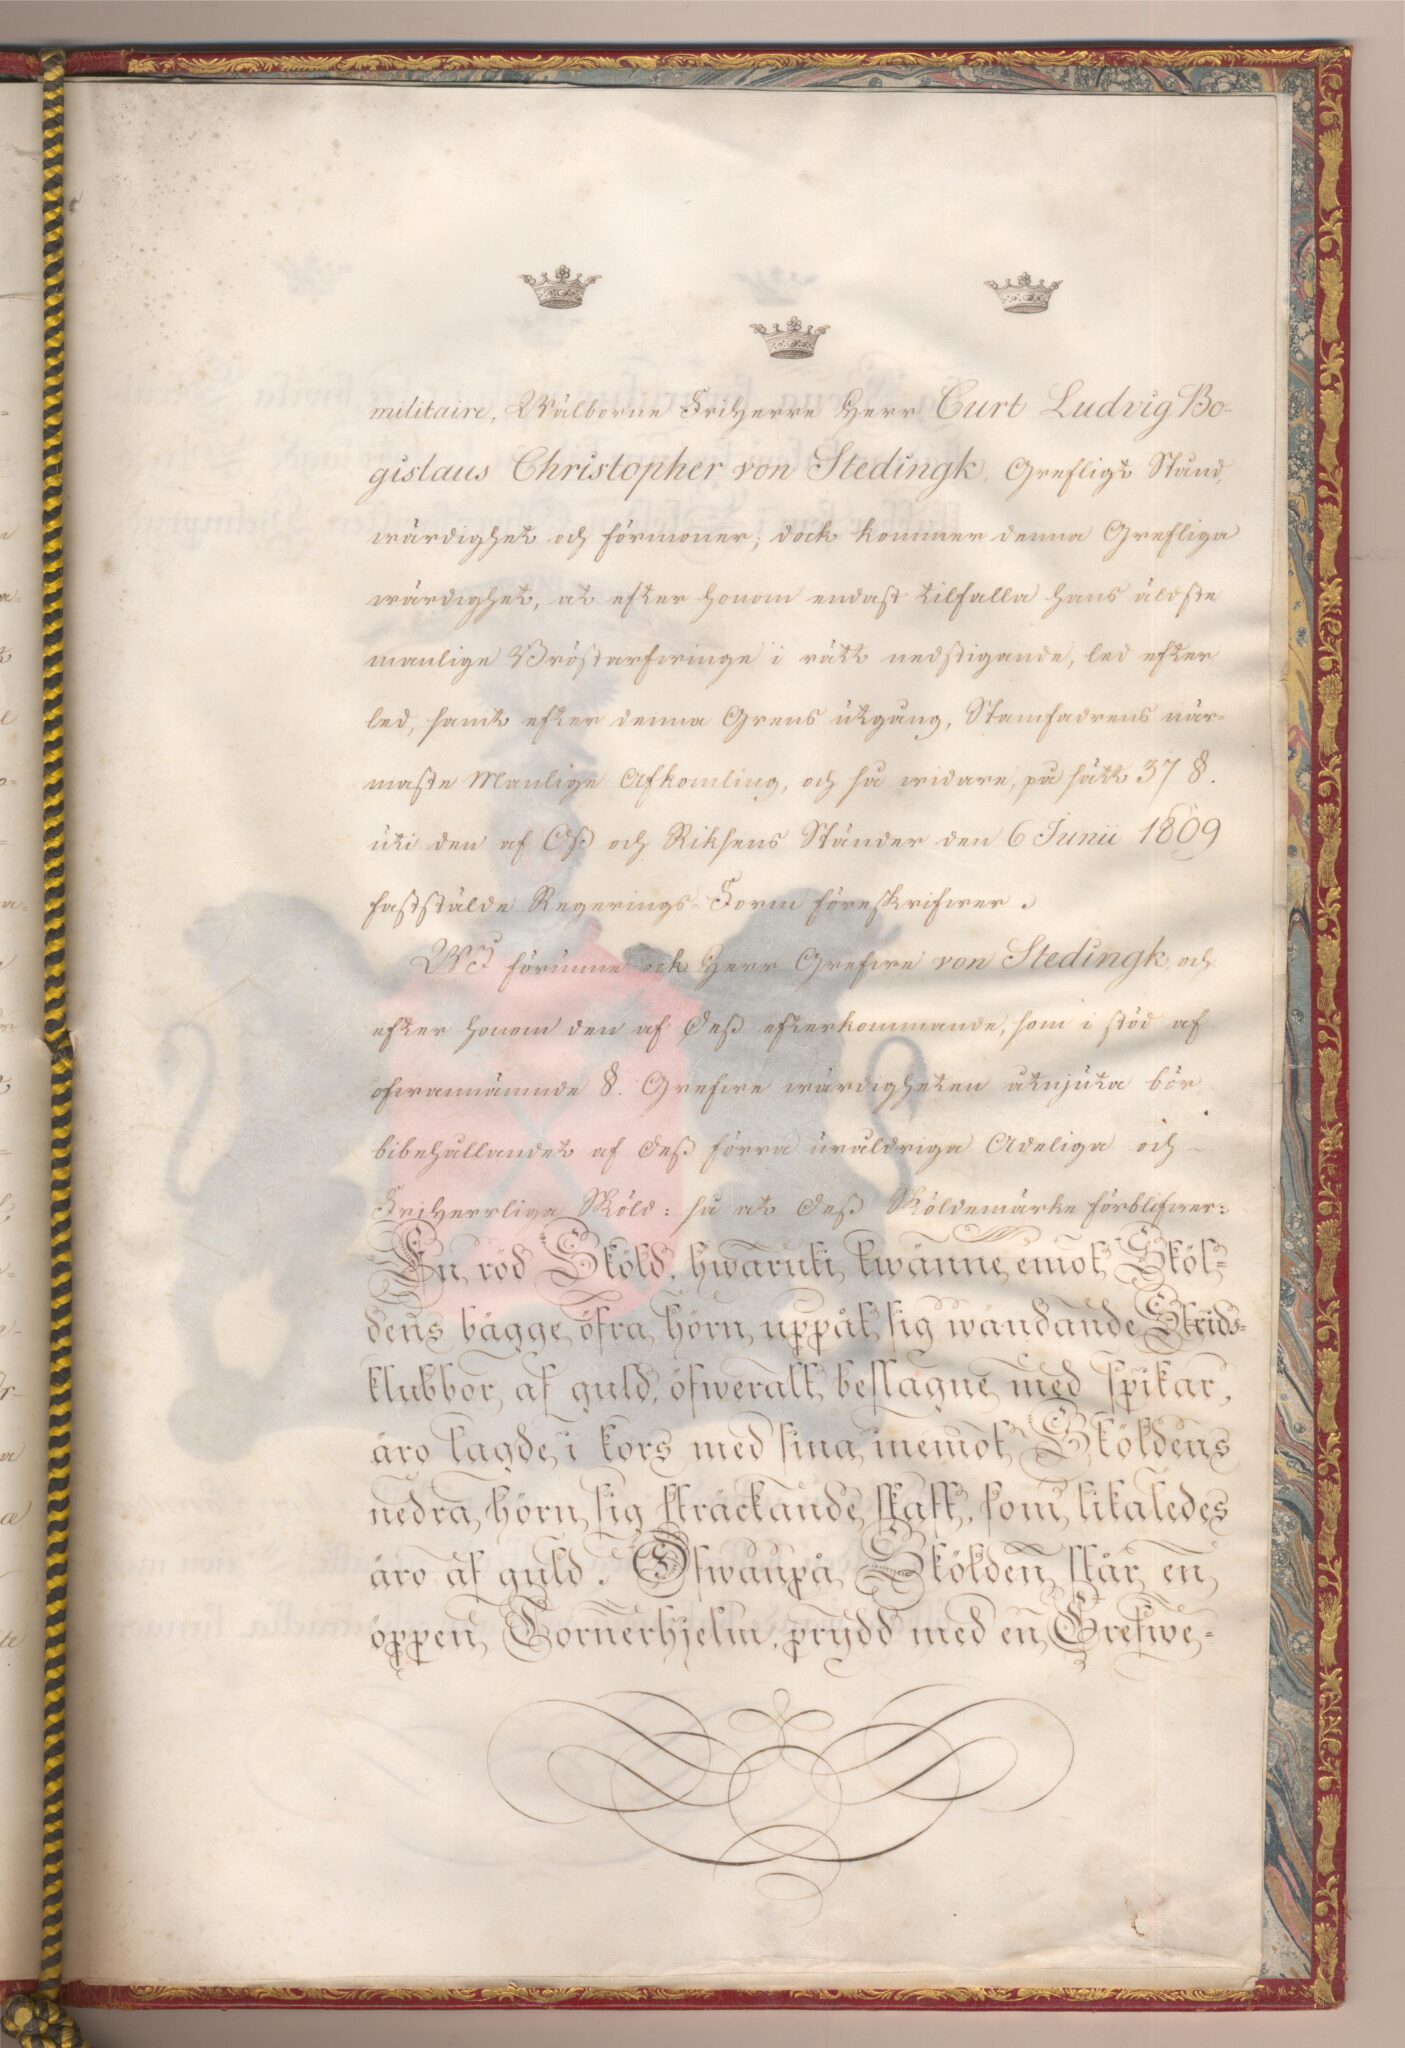 militaire, Wälborne FriHerre Herr Curt Ludvig Bo-
gislaus Christopher von Stedingk, Grefligt Stånd,
wärdighet och förmoner; dock kommer denna Grefliga
wärdighet, at efter honom endast tilfalla hans äldste
manlige Bröstarfwinge i rätt nedstigande, led efter
led, samt efter denna Grens utgång, Stamfadrens när-
maste Manlige Afkomling, och så widare, på sätt 37 §.
uti den af Oß och Riksens Ständer den 6 Junii 1809
fastställde Regerings-Form föreskrifwer.
WJ förunne ock Herr Grefwe von Stedingk och
efter honom den af Deß efterkommande, som i stöd af
ofwannämnde §. Grefwe wärdigheten utnjuta bör
bibehållandet af Deß förra uråldriga Adeliga och
FriHerrliga Sköld: så at Deß Sköldemärke förblifwer:
En röd Sköld, hwaruti twänne, emot Sköl-
dens bägge öfra hörn uppåt sig wändande Strids-
klubbor af guld, öfweralt beslagne med spikar,
äro lagde i kors med sina inemot Sköldens
nedra hörn sig sträckande skaft, som likaledes
äro af guld. Ofwanpå Skölden står en
öppen Tornerhjelm, prydd med en Grefwe-